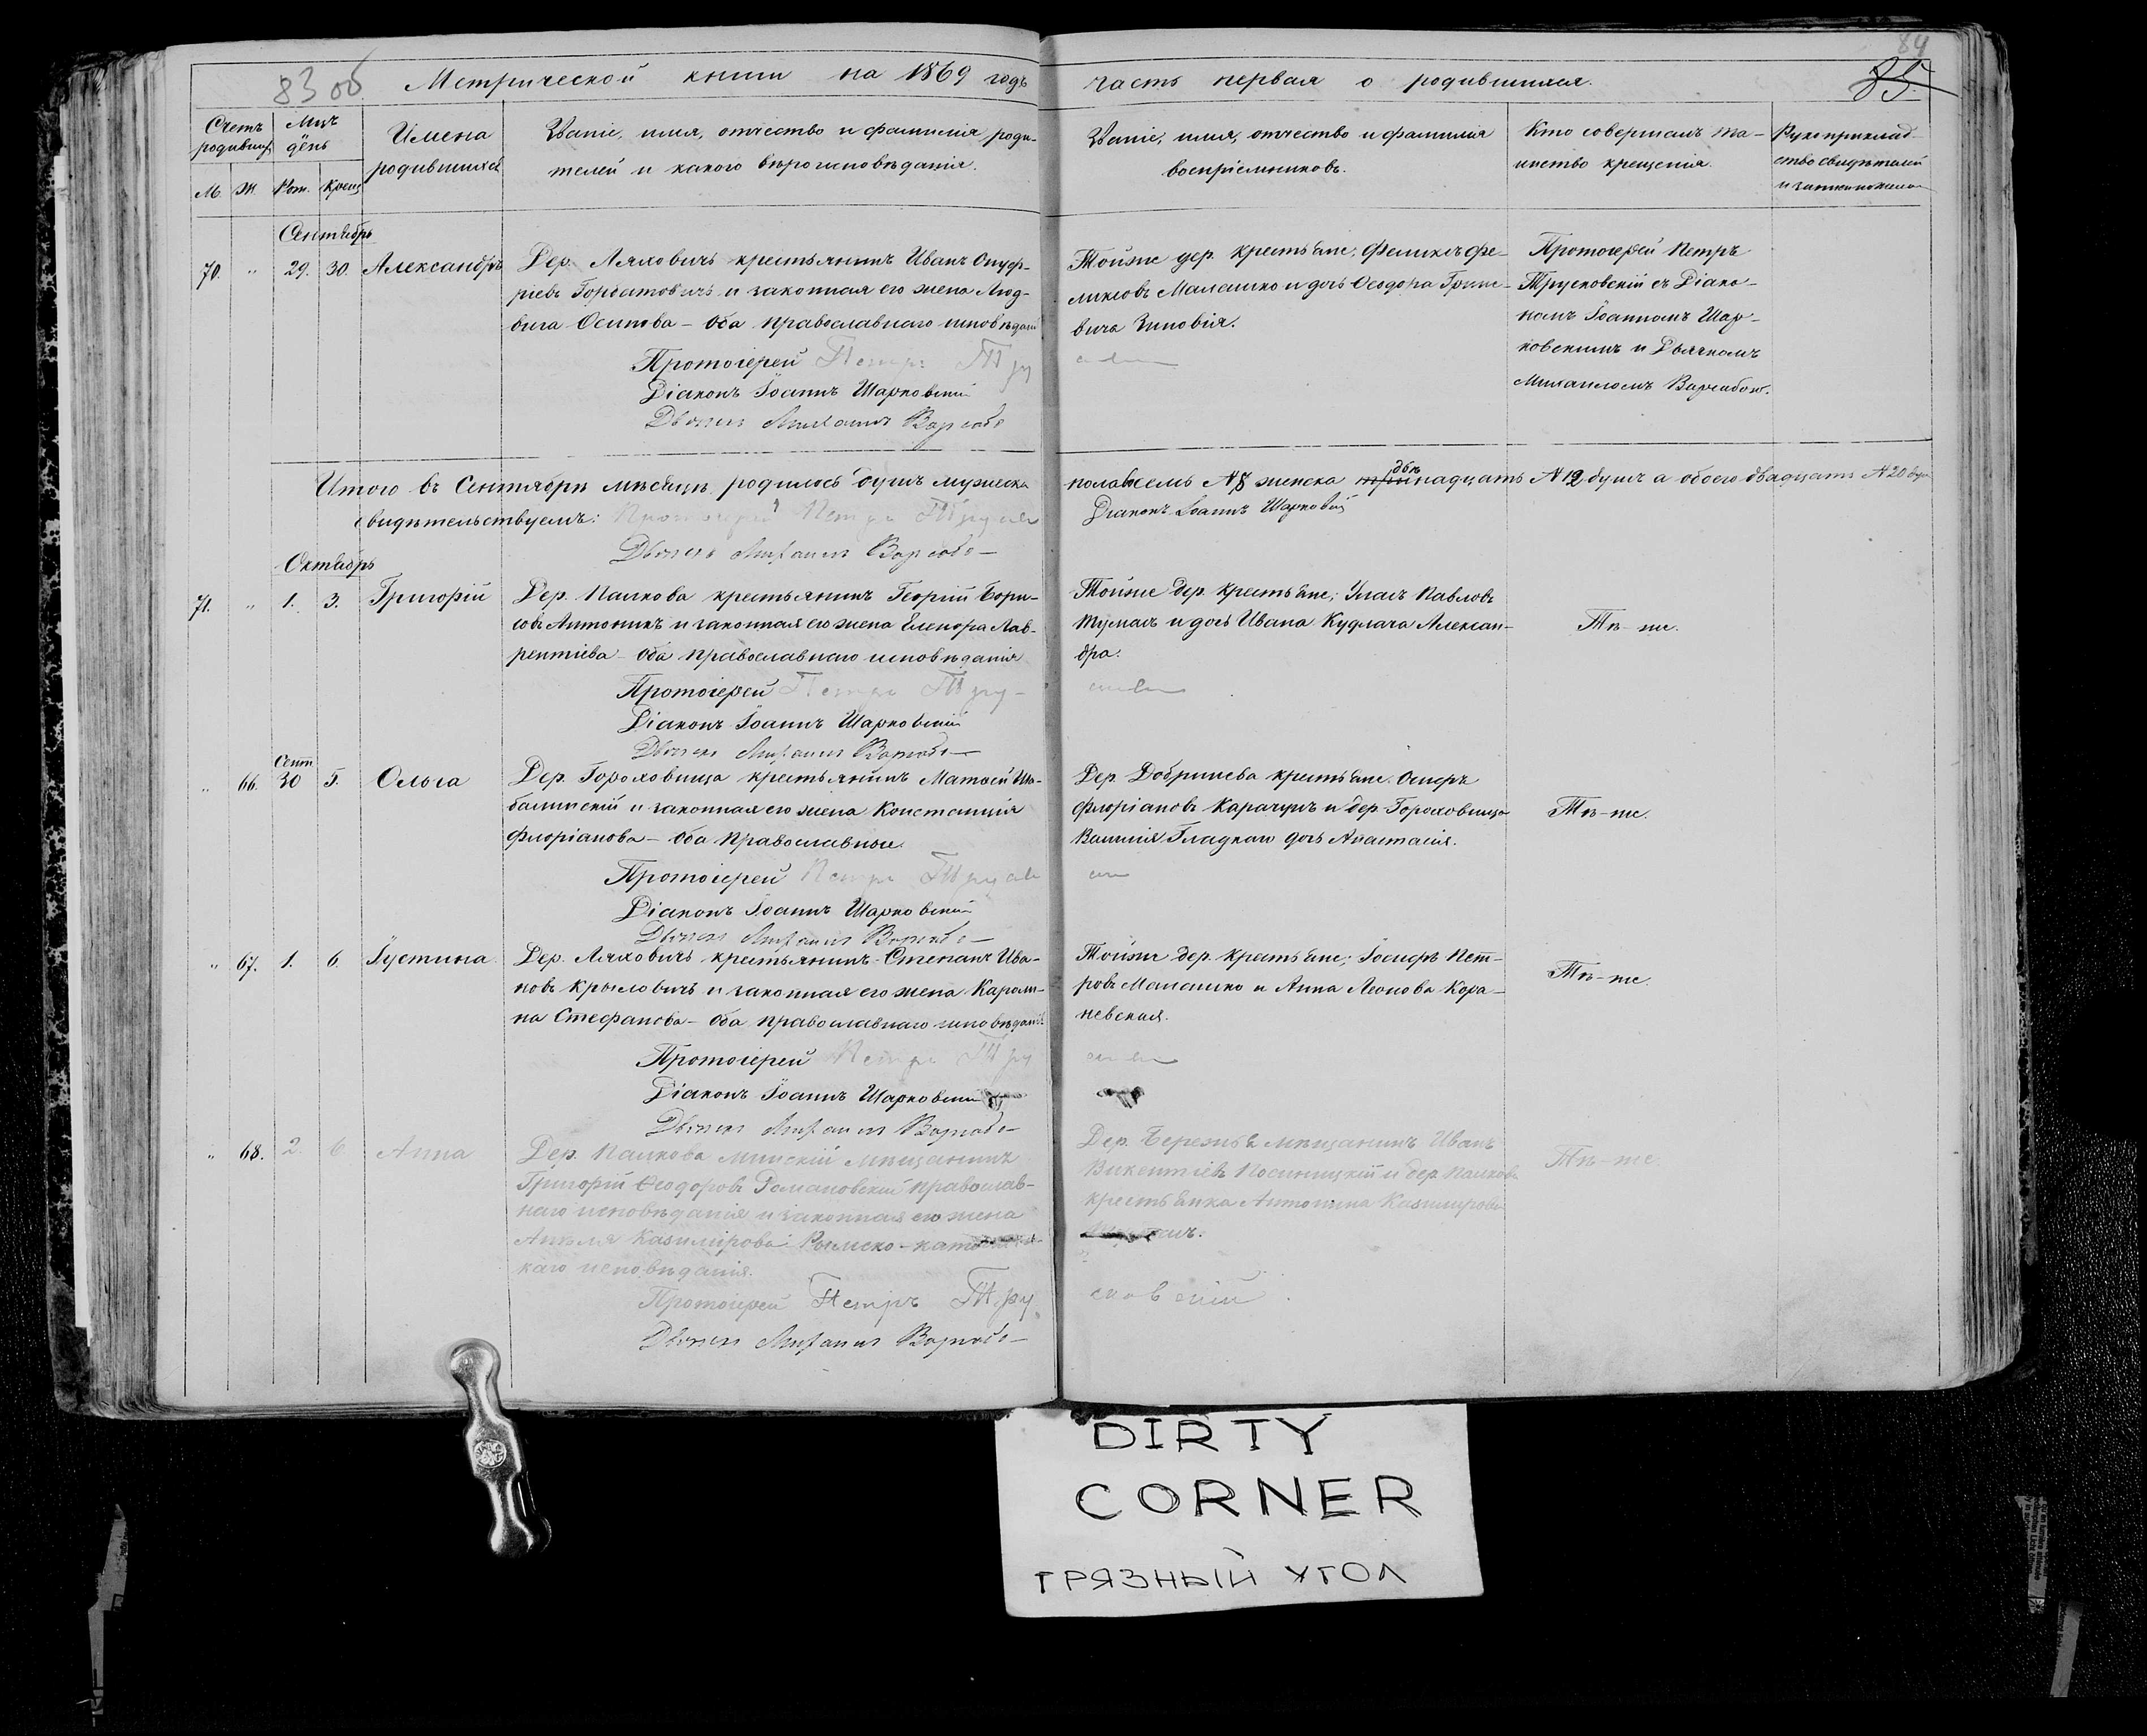 83 об
Метрической книги на 1869 годъ
часть первая о родившихся.
84
85
Счетъ родивших
Мцъ день
Имена родившихся
Званіе, имя, отчество и фамилія роди-
телей и какого вѣроисповѣданія.
Званіе, имя, отчество и фамилія
воспріемниковъ.
Кто совершалъ та-
инство крещенія.
Рукоприклад-
ство свидѣтелей
М. Ж. Рож. Крещ
Сентябрь
70. " 29. 30. Александръ
Дер. Ляховичъ крестьянинъ Иванъ Онуф-
ріевъ Горбатовичъ и законная его жена Люд-
вига Осипова – Оба православнаго исповѣдані
Протоіерей Петръ Тру
Діаконъ Іоаннъ Шарковскій
Дьячекъ Михаилъ Варнаво
Тойже дер. крестьяне, Феликсъ Фе-
ликсовъ Малашко и дочь Ѳеодора
Зиновія.
Протоіерей Петръ
Трусковскій съ Діако-
номъ Іоанномъ Шар-
ковскимъ и Дьячкомъ
Михаиломъ
Итого въ Сентябрѣ мѣсяцѣ родилось душъ мужеска
пола восемь №8 женска три двѣ надцать №12 душъ а обоего двадцать №20 душ
свидѣтельствуемъ: Протоіерей Петръ Труск
Діаконъ Іоаннъ Шарковскій
Дьячекъ Михаилъ
Октябрь
71. " 1. 3. Григорій
Дер. Палкова крестьянинъ Георгій Бори-
совъ Антоникъ и законная его жена Еленора Лав-
рентіева – Оба православнаго исповѣданія
Протоіерей Петръ Тру-
Діаконъ Іоаннъ Шарковскій
Дьячекъ Михаилъ
Тойже дер. крестьяне; Уласъ Павловъ
Тумаль и дочь Ивана Кудлача Алексан-
дра.
Тѣ-же.
Сент
" 66. 30 5. Ольга
Дер. Гороховища крестьянинъ Матвей
и законная его жена Констанція
Флоріанова – Оба православные.
Протоіерей Петръ Труск
Діаконъ Іоаннъ Шарковскій
Дьячекъ Михаилъ
Дер. Добринева крестьяне. Осипъ
Флоріановъ Карачунъ и дер. Гороховища
Василія Гладкаго дочь Анастасія.
Тѣ-же.
" 67. 1. 6. Іустина.
Дер. Ляховичъ крестьянинъ Степанъ Ива-
новъ Крыловичъ и законная его жена Кароли-
на Стефанова – Оба православнаго исповѣданія
Протоіерей Петръ Тру
Діаконъ Іоаннъ Шарковскій
Дьячекъ Михаилъ
Тойже дер. крестьяне; Іосифъ Пет-
ровъ Малашко и Анна Леонова Кора-
невская.
Тѣ-же.
" 68. 2. 6 Анна
Дер. Палкова Минскій мѣщанинъ
Григорій Ѳеодоровъ Романовскій православ-
наго исповѣданія и законная его жена
Анѣля Казимірова Римско-като
каго исповѣданія.
Протоіерей Петръ Тру
сковскій
Дьячекъ Михаилъ
Дер. Бережья мѣщанинъ Иванъ
Викентіевъ и дер. Палкова
крестьянка Антонина Казимірова
Тѣ-же
DIRTY
CORNER
ГРЯЗНЫЙ УГОЛ